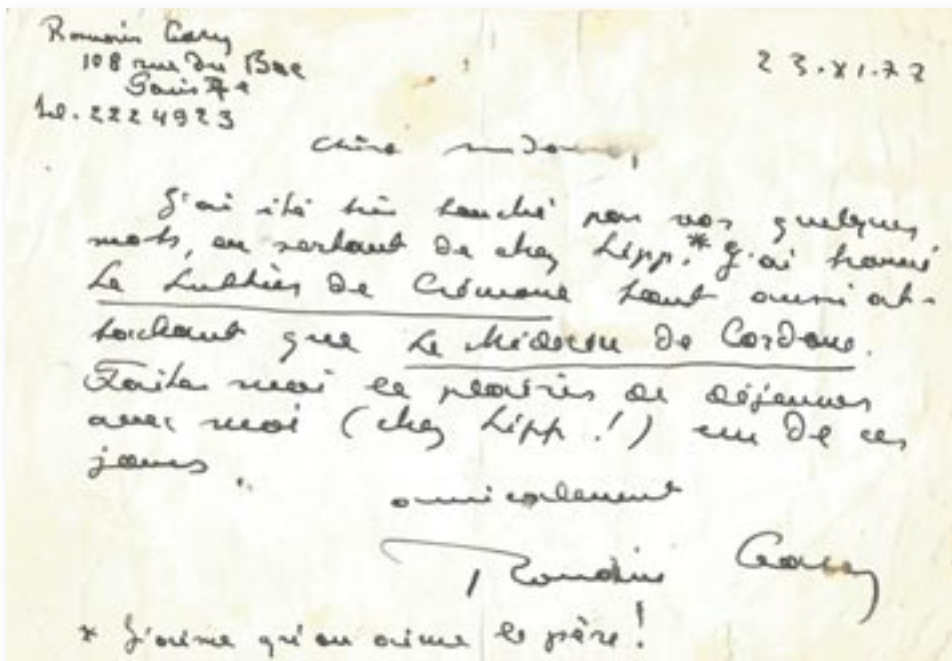 Romain Gary
108 rue du Bac
Paris 7e
Tel. 222 4923
23.XI.77
Chère madame,
J'ai été très touché par vos quelques
mots, en sortant de chez Lipp.* J'ai trouvé
Le Luthier de Crémone tout aussi at-
tachant que Le Médecin de Cordoue.
Faites moi le plaisir de déjeuner
avec moi (chez Lipp !) un de ces
jours.
amicalement
Romain Gary
* J'aime qu'on aime le père !